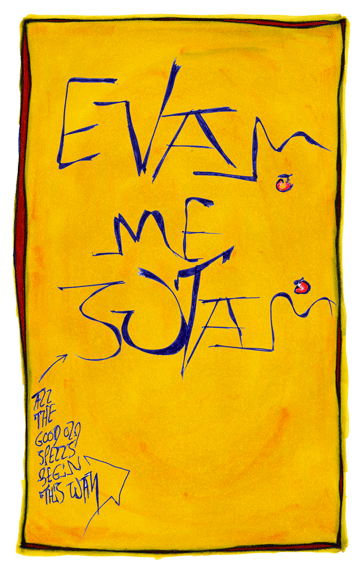 EVAM
ME
SUTAM
ALL
THE
GOOD OLD
SPELLS
BEGIN
THIS WAY